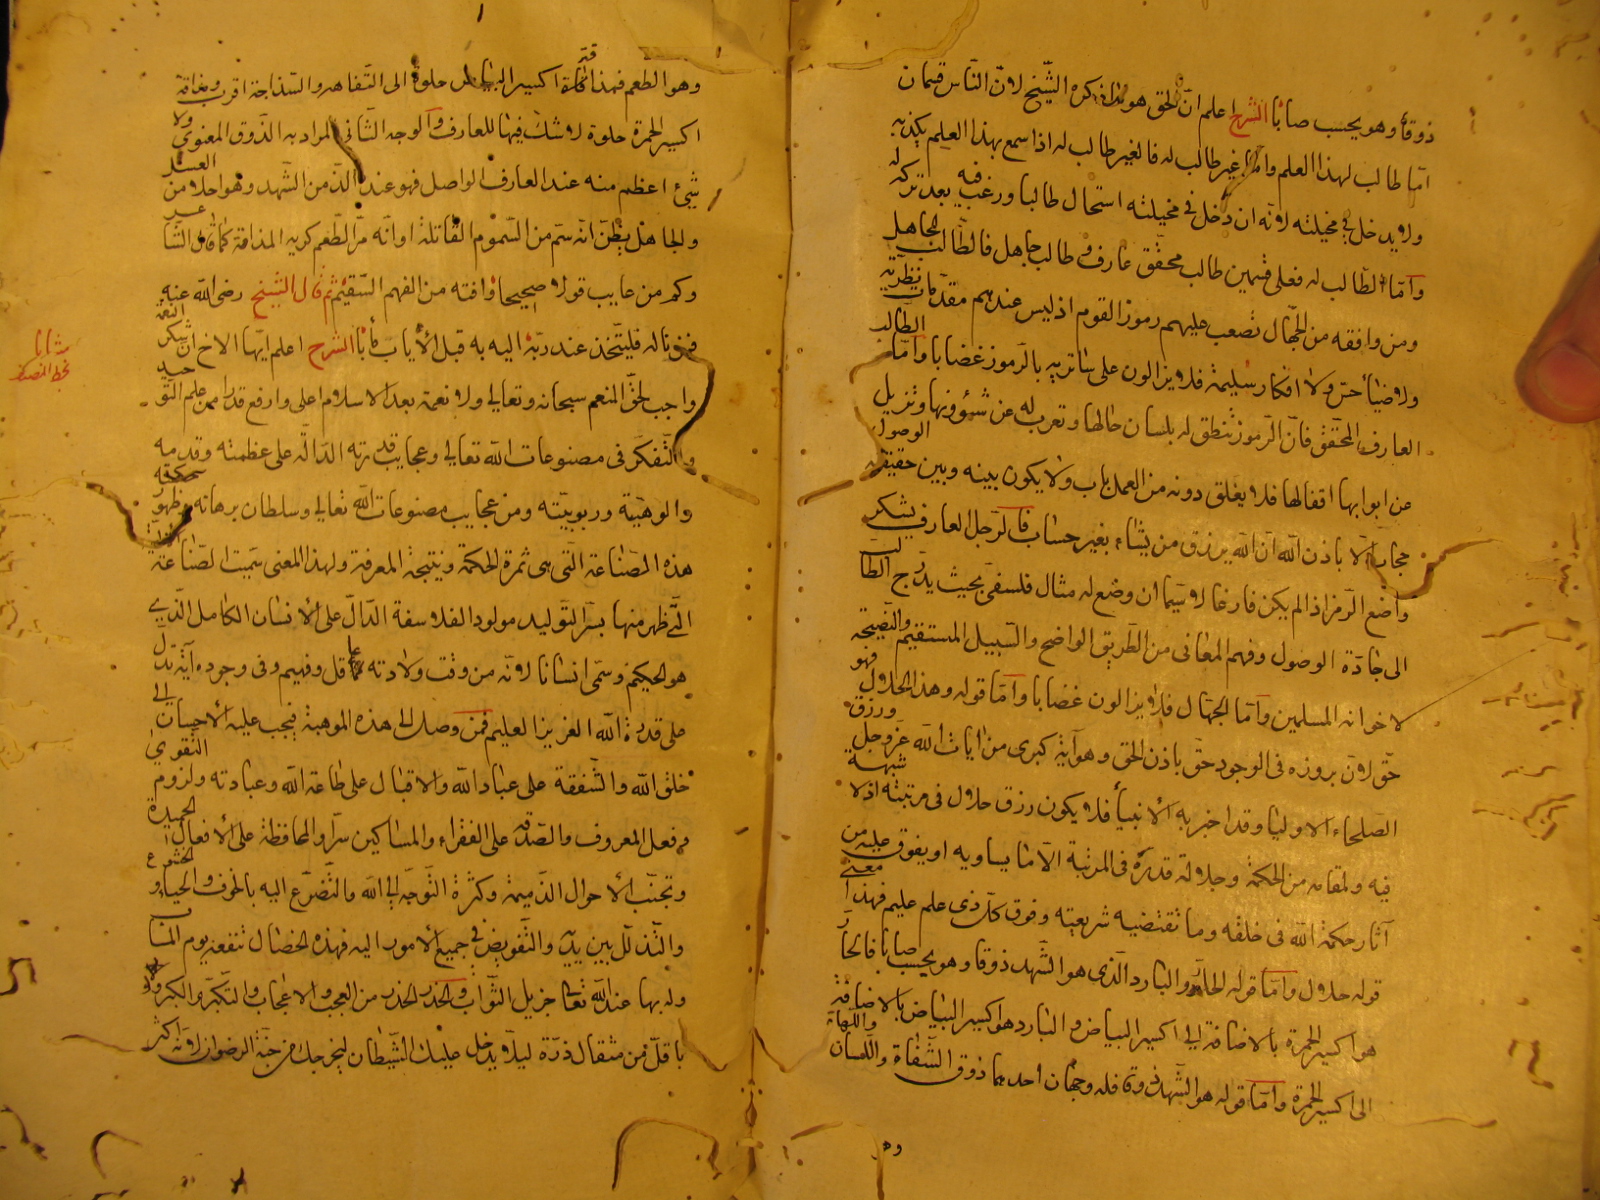 ذوقا وهو يحسب صابا الشرح اعلم ان الحق هو ما ذكره الشيخ لان الناس قسمان
اما طالب لهذا العلم واما غير طالب له فالغير طالب له اذا سمع بهذا العلم يكذبه
ولا يدخل في مخيلته لانه ان دخل في مخيلته استحال طالبا ورغب فيه بعد تركه له
واما الطالب له فعلى قسمين طالب محقق عارف وطالب جاهل فالطالب الجاهل
ومن وافقه من الجهال تصعب عليهم رموز القوم اذ ليس عندهم مقدمات نظرية
ولا افكار سليمة فلا يزالون على سائر به بالرموز غضابا واما الطالب
العارف المحقق فان الرموز تنطق له بلسان حالها وتعرب له عن شؤونها وتزيل
عن ابوابها اقفالها فلا يغلق دونه من العمل باب ولا يكون بينه وبين حقيقة الوصول
حجاب الا باذن الله ان الله يرزق من يشاء بغير حساب فالرجل العارف يشكر
واضع الرمز اذ لم يكن فارغا لا سيما ان وضع له مثال فلسفي بحيث يدرج الطالب
الى جادة الوصول وفهم المعاني من الطريق الواضح والسبيل المستقيم والنصيحة
لاخوانه المسلمين واما الجهال فلا يزالون غضابا واما قوله وهذا الحلال فهو
حق لان بروزه في الوجود حق باذن الحق وهو آية كبرى من ايات الله عز وجل ورزق
الصلحاء الاوليا وقد اخبر به الانبيا فلا يكون رزق حلال في مرتبته اذ لا شبهة
فيه ولمقامه من الحكمة وجلالة قدره في المرتبة الا ما يساويه او يفوق عليه من
آثار حكمة الله في خلقه وما تقتضيه شريعته وفوق كل ذي علم عليم فهذا معنى
قوله حلال واما قوله الحلو والبارد الذي هو الشهد ذوقا وهو يحسب صابا فالحار
هو اكسير الحمرة بالاضافة الى اكسير البياض والبارد هو اكسير البياض بالاضافة
الى اكسير الحمرة واما قوله هو الشهد ذوقا فله وجهان احدهما ذوق الشفاة واللسان واللهاة
وهو
وهو الطعم فهذا اكسير البياض حلوة الى التفاهة والسذاجة اقرب ومذاقة
اكسير الحمرة حلوة لا شك فيها للعارف والوجه الثاني المراد به الذوق المعنوي ولا
شيء اعظم منه عند العارف الواصل فهو عنده الذ من الشهد وهو احلا من العسل
والجاهل يظن انه سم من السموم القاتلة او انه مر الطعم كريه المذاقة كما قال الشاعر
وكم من عايب قولا صحيحا وافته من الفهم السقيم ثم قال الشيخ رضي الله عنه
فمن ناله فليتخذ عند ربه اليه به قبل الأياب مأبا الشرح اعلم ايها الاخ ان شكر النعمة
واجب لحق المنعم سبحانه وتعالى ولا نعمة بعد الاسلام اعلى وارفع قدرا من علم التوحيد
والتفكر في مصنوعات الله تعالى وعجايب قدرته الدالة على عظمته وقدمه
والوهية وربوبيته ومن عجايب مصنوعات الله تعالى وسلطان برهانه وظهور حكمته
هذه الصناعة التي هي ثمرة الحكمة ونتيجة المعرفة ولهذا المعنى سميت الصناعة
التي ظهر منها بسر التوليد مولود الفلاسفة الدال على الانسان الكامل الذي
هو الحكيم وسمى انسانا لانه من وقت ولادته عاقل وفهيم وفي وجوده آية تدل
على قدرة الله العزيز العليم فمن وصل الى هذه الموهبة فيجب عليه الاحسان الى
خلق الله والشفقة على عباد الله والاقبال على طاعة الله وعبادته ولزوم التقوى
وفعل المعروف والصدقة على الفقراء والمساكين سرا والمحافظة على الافعال الحميدة
وتجنب الاحوال الذميمة وكثرة التوجه الى الله والتضرع اليه بالخوف والحياء والخشوع
والتذلل بين يديه والتفويض في جميع الامور اليه فهذه الخصال تنفعه يوم المئاب
وله بها عند الله تعالى جزيل الثواب والحذر الحذر من العجب والاعجاب والتكبر والكبر ولو
باقل من مثقال ذرة ليلا يدخل عليك الشيطان ليخرجك من جنة الرضوان لانه اكثر